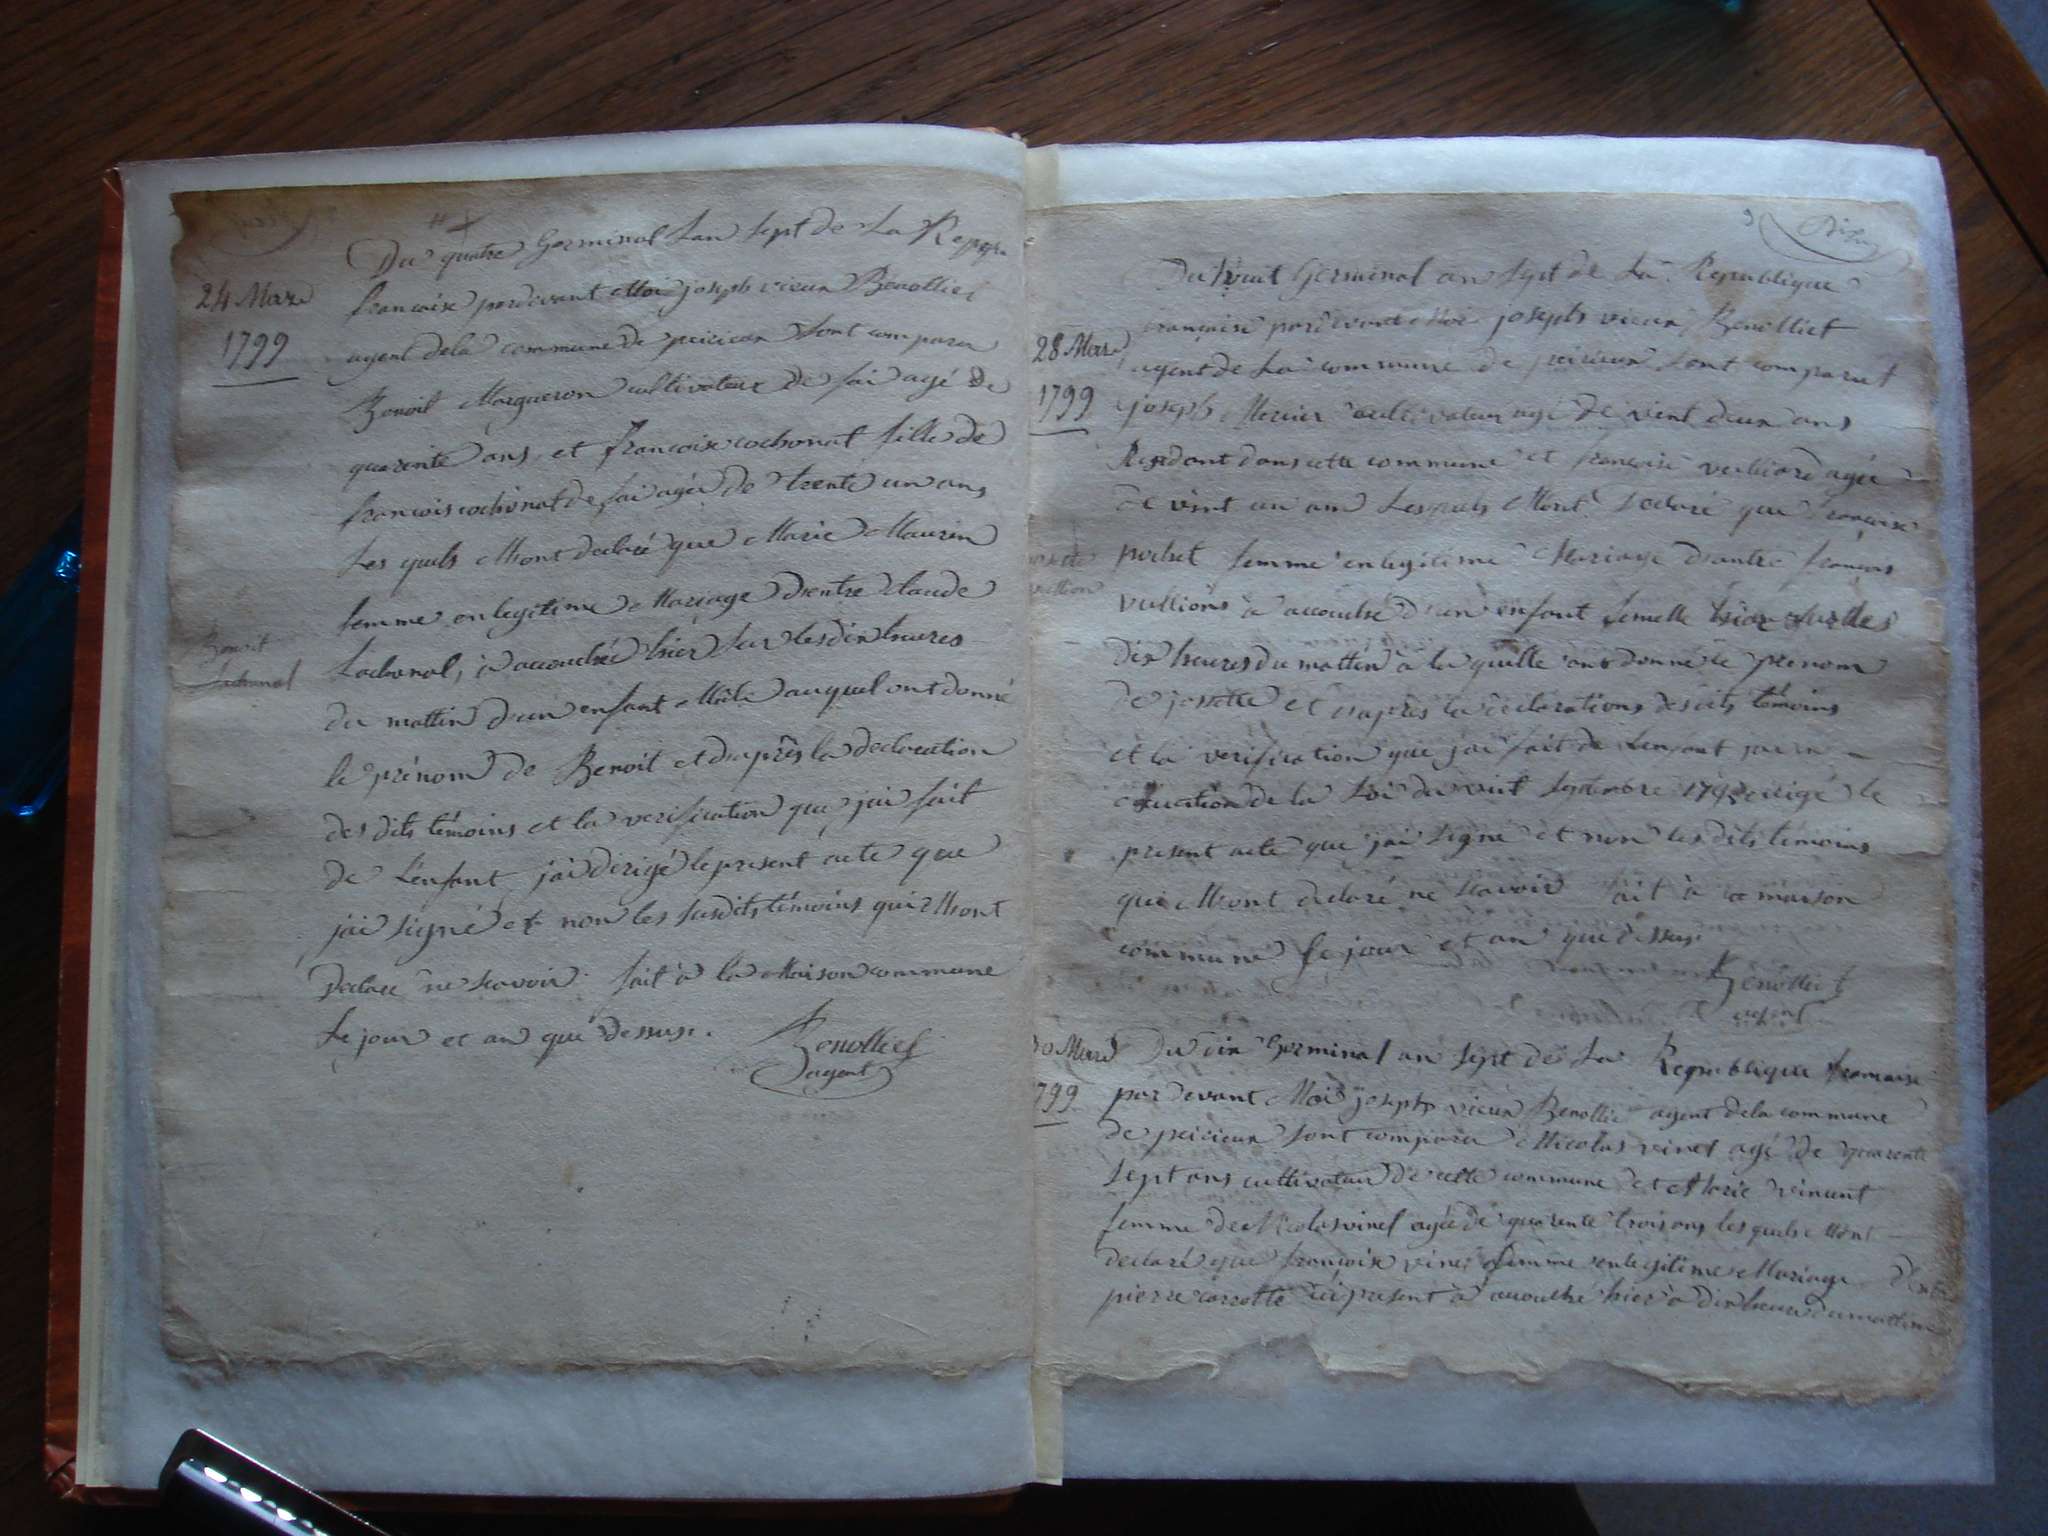 Du quatre Germinal Lan sept de La
24 Mars
1799
francaise pardevant Moi joseph vieux Benolliet
agent dela commune de peirieux sont comparu
Benoit Margueron cultivateur de fai agé de
quarente ans et francoise cochonat fille de
francois cochonat de fai agée de trente un ans
Les quels Mont declaré que Marie Maurin
femme en legitime Mariage dentre claude
Benoit
Lachonal
Lachonal, à accouchée hier sur les dix heures
du mattin d'un enfant Mâle auquel ont donné
le prénom de Benoit et daprês la declaration
des dits têmoins et la verification que jai fait
de L'enfant jai dérigé le present acte que
jai signé et non les susdits têmoins qui Mont
declaré ne scavoir fait à la Maison commune
Le jour et an que dessus.
Benolliet
agent
9
Du huit Germinal an sept de La Republique
francaise pardevant Moi joseph vieux Benolliet
28 Mars
1799
agent de La commune de peirieux sont comparut
joseph Mercier cultivateur agé de vint deux ans
Residant dans cette commune et francoise vulliard agée
de vint un ans Lesquels Mont declaré que francoise
pochet femme en legitime Mariage d'antre francois
vullion à accouché d'un enfant femelle hier sur les
dix heures du mattin à la quelle ont donné le prenom
de josette et daprès la déclarations desdits témoins
et la verification que jai fait de Lenfant jai en
éxécution de la Loi du vint septembre 1792 érigé le
present acte que jai signé et non les dits témoins
qui Mont declaré ne scavoir fait à la maison
commune Le jour et an que dessus
Benolliet
agent
30 Mars
1799
Du dix Germinal an sept de La Republique francaise
par devant Moi joseph vieux Benolliet agent dela commune
de peirieux sont comparu Nicolas vinet agé de quarente
sept ans cultivateur de cette commune et Marie
femme de Nicolas vinet agée de quarente trois ans les quels Mont
declaré que francoise vinet femme en legitime Mariage d'entre
pierre ici present à accouché hier à dix heures du mattin